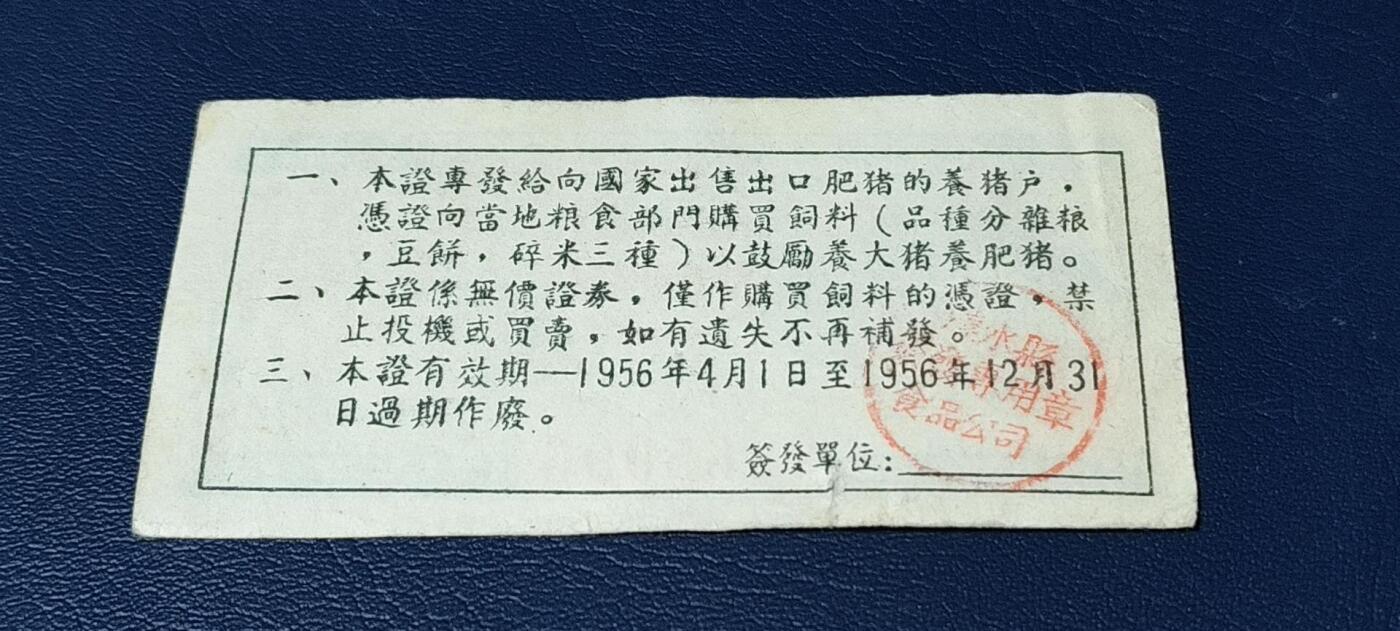 一、本證專發給向國家出售出口肥猪的養猪户，
憑證向當地粮食部門購買飼料（品種分雜粮
，豆餅，碎米三種）以鼓勵養大猪養肥猪。
二、本證係無價證券，僅作購買飼料的憑證，禁
止投機或買賣，如有遺失不再補發。
三、本證有效期—1956年4月1日至1956年12月31
日過期作廢。
簽發單位：
水縣
專用章
食品公司